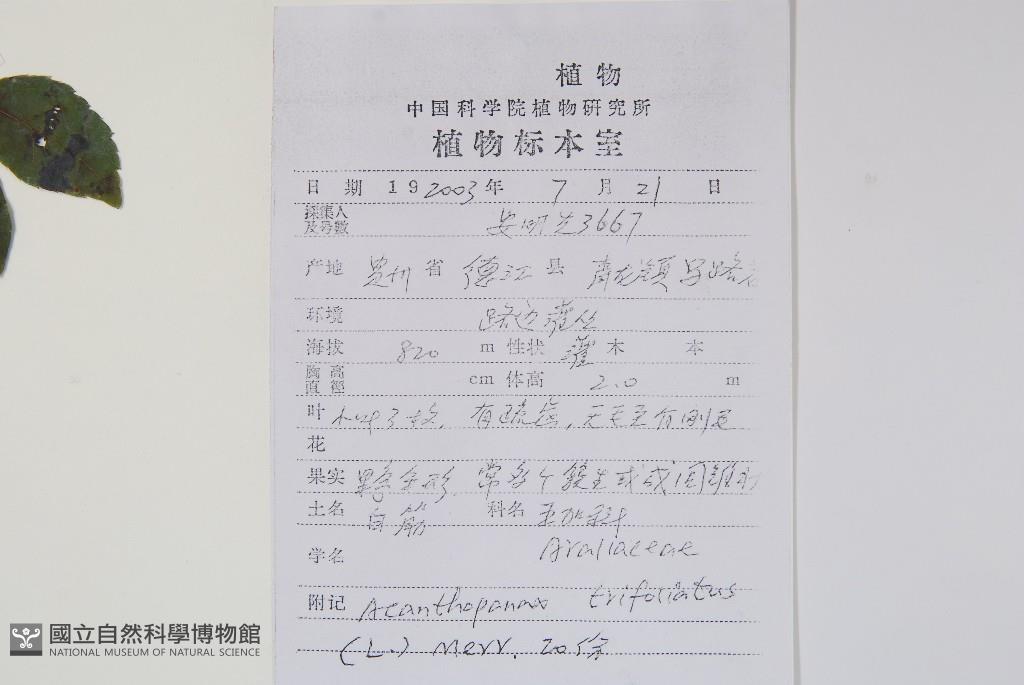 植物
中国科学院植物研究所
植物标本室
日 期 19 2003 年 7 月 21 日
採集人及号數 安明先3667
产地 贵州 省 德江 县
环境 路边灌丛
海拔 820 m 性状 灌 木 本
胸高直徑 cm 体高 2.0 m
叶 小叶3枚, 有疏齿, 无毛至有刚毛
花
果实 常多个簇生或成
土名 白簕 科名 五加科
学名 Araliaceae
附记 Acanthopanax trifoliatus
(L.) Merr. 20份
國立自然科學博物館
NATIONAL MUSEUM OF NATURAL SCIENCE